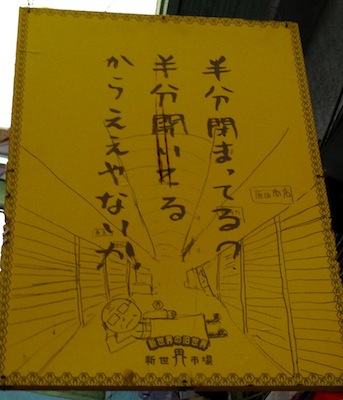 半分閉まってるの、
半分開いてる
からええやないか。
新世界の旧世界
新世界市場